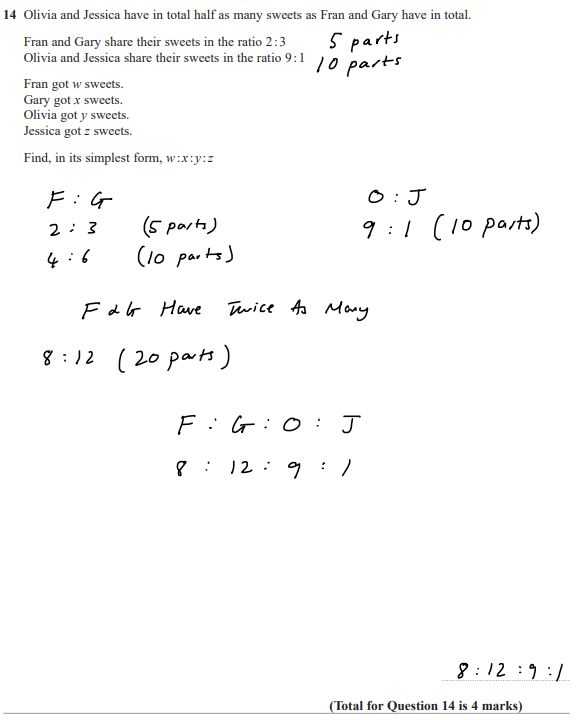 14 Olivia and Jessica have in total half as many sweets as Fran and Gary have in total.
Fran and Gary share their sweets in the ratio 2:3 5 parts
Olivia and Jessica share their sweets in the ratio 9:1 10 parts
Fran got w sweets.
Gary got x sweets.
Olivia got y sweets.
Jessica got z sweets.
Find, in its simplest form, w:x:y:z
F : G O : J
2 : 3 (5 parts) 9 : 1 (10 parts)
4 : 6 (10 parts)
F & G Have Twice As Many
8 : 12 (20 parts)
F : G : O : J
8 : 12 : 9 : 1
8 : 12 : 9 : 1
(Total for Question 14 is 4 marks)